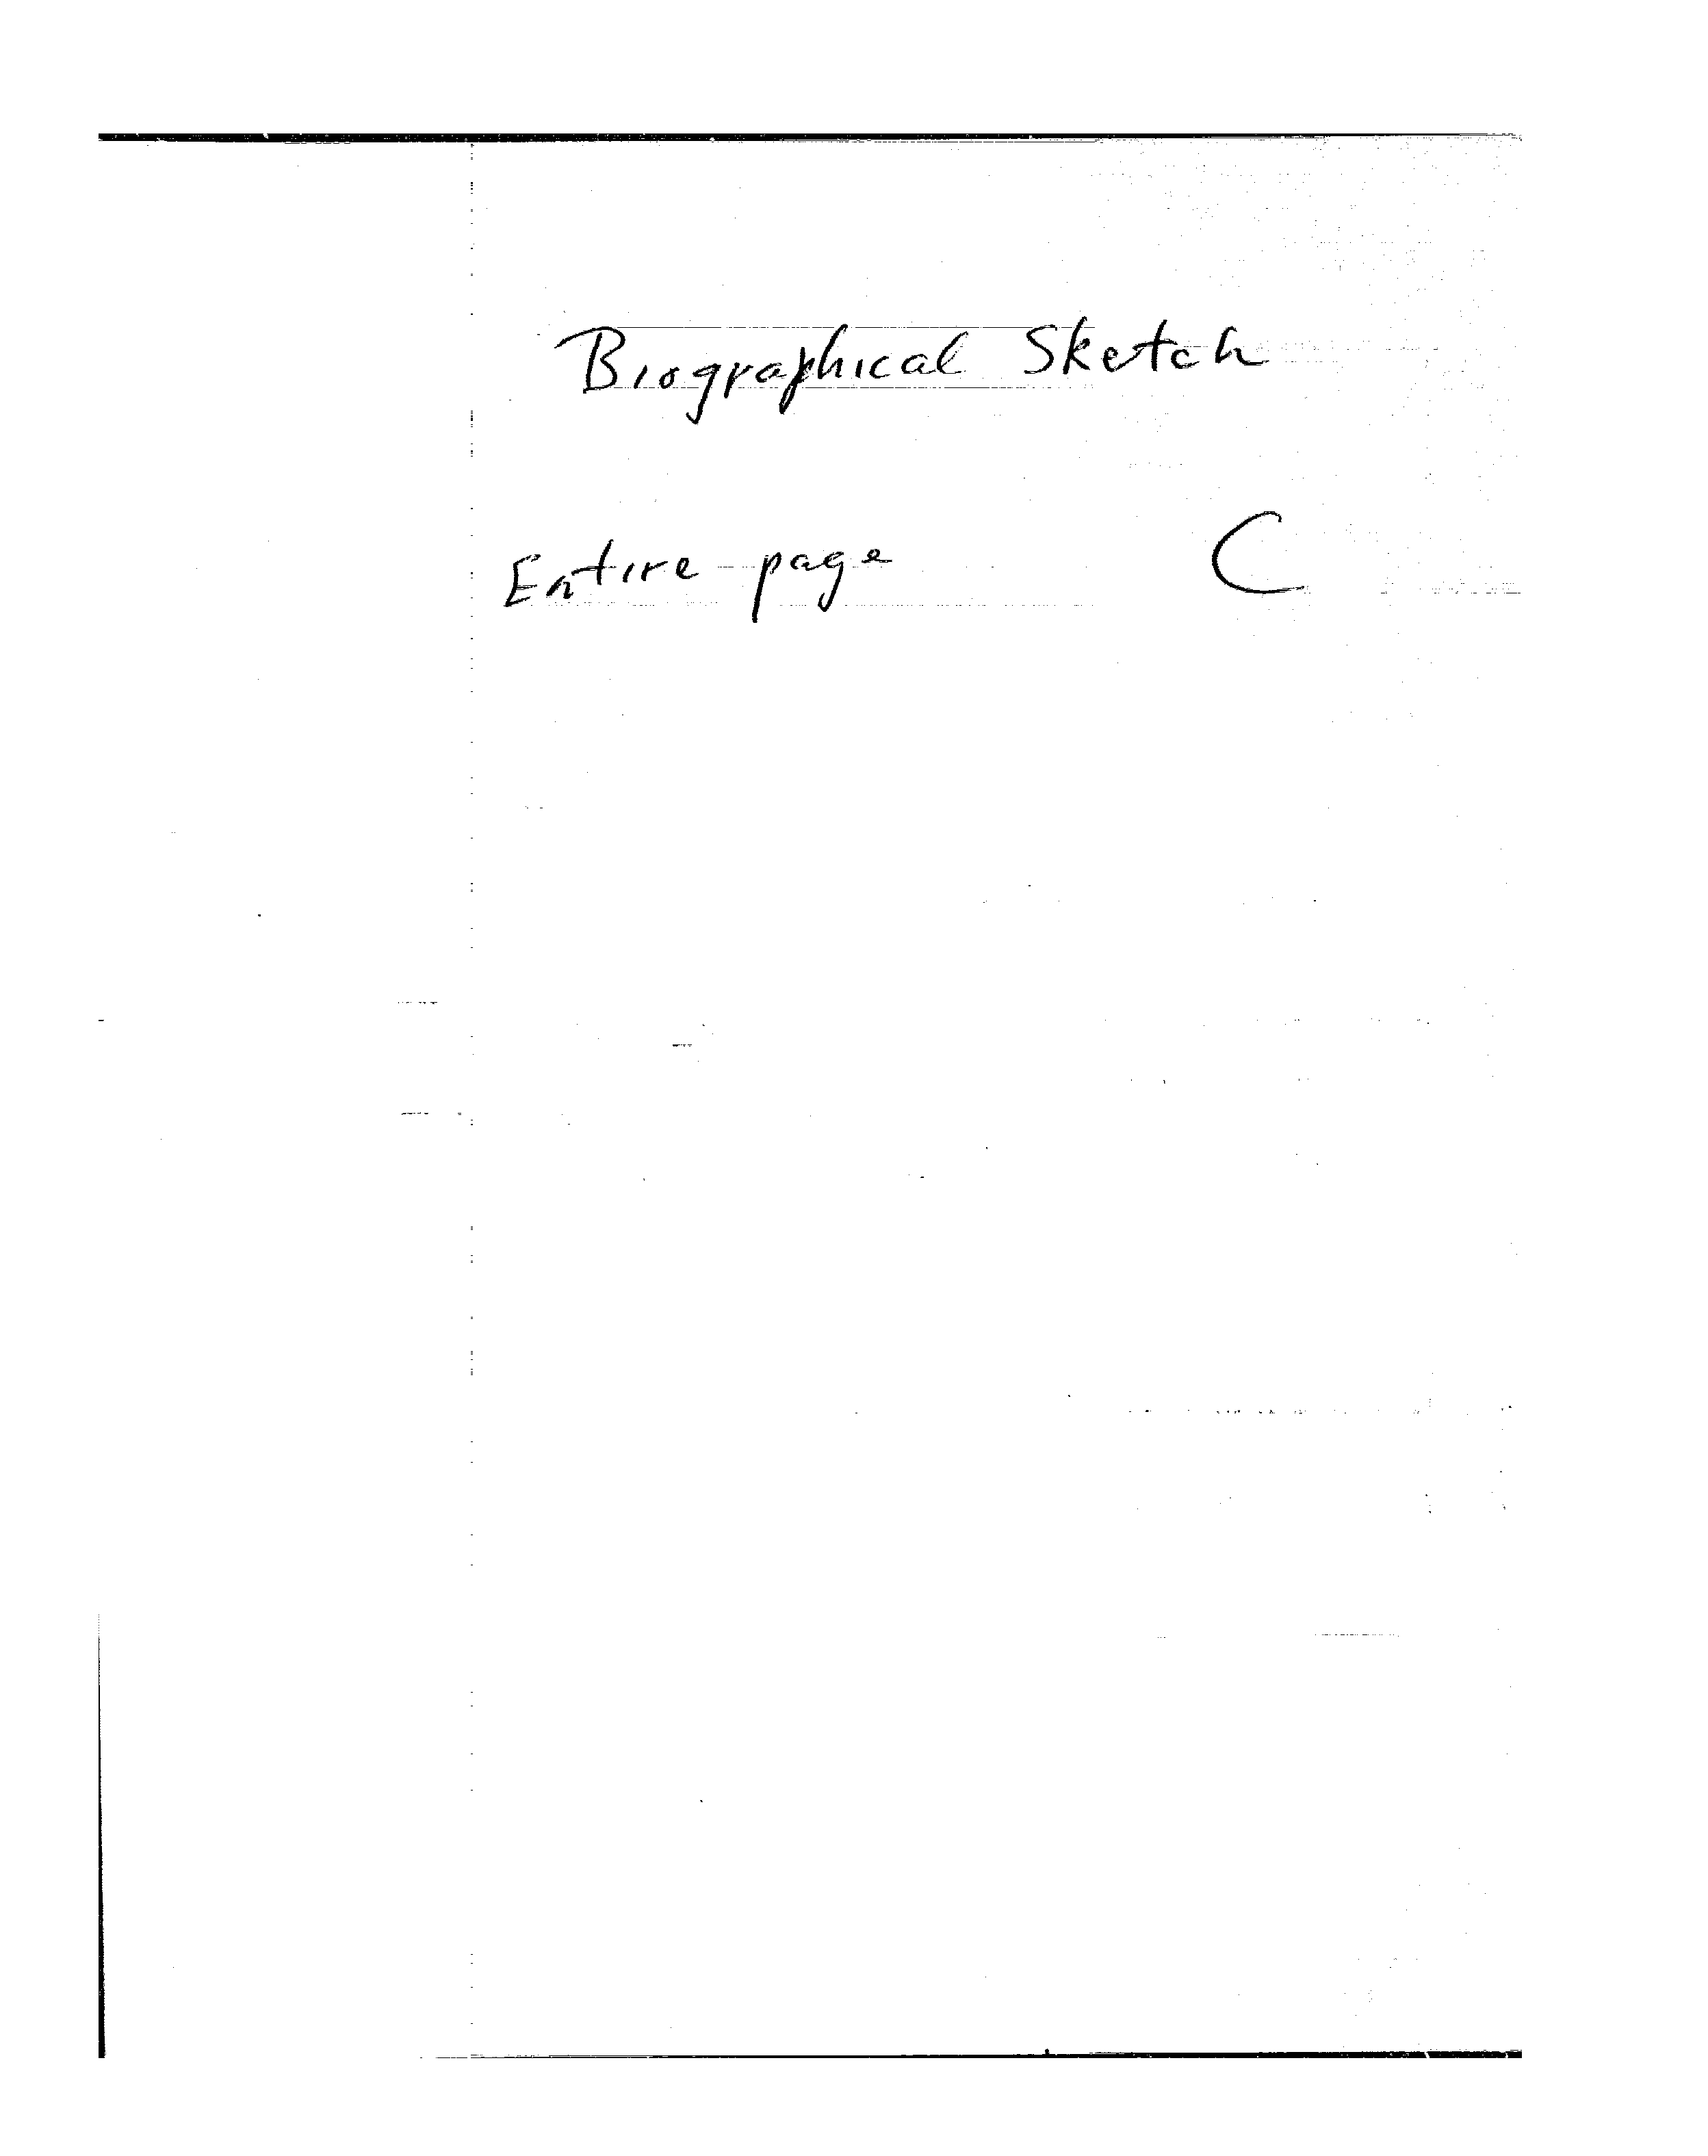 Biographical Sketch
Entire page C